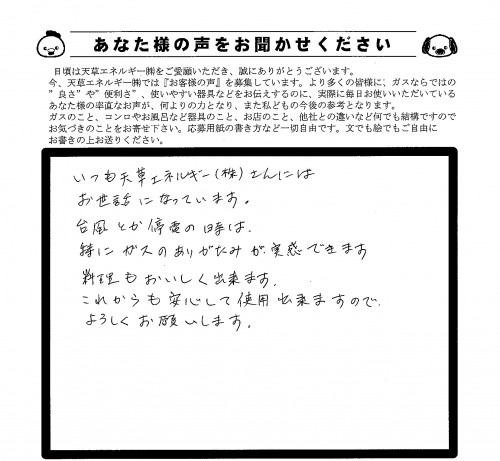 あなた様の声をお聞かせください
日頃は天草エネルギー㈱をご愛顧いただき、誠にありがとうございます。
今、天草エネルギー㈱では『お客様の声』を募集しています。より多くの皆様に、ガスならではの
”良さ”や”便利さ”、使いやすい器具などをお伝えするのに、実際に毎日お使いいただいている
あなた様の率直なお声が、何よりの力となり、また私どもの今後の参考となります。
ガスのこと、コンロやお風呂など器具のこと、お店のこと、他社との違いなど何でも結構ですので
お気づきのことをお寄せ下さい。応募用紙の書き方など一切自由です。文でも絵でもご自由に
お書きの上お送りください。
いつも天草エネルギー(株)さんには
お世話になっています。
台風とか停電の時は、
特にガスのありがたみが実感できます
料理もおいしく出来ます。
これからも安心して使用出来ますので、
よろしくお願いします。